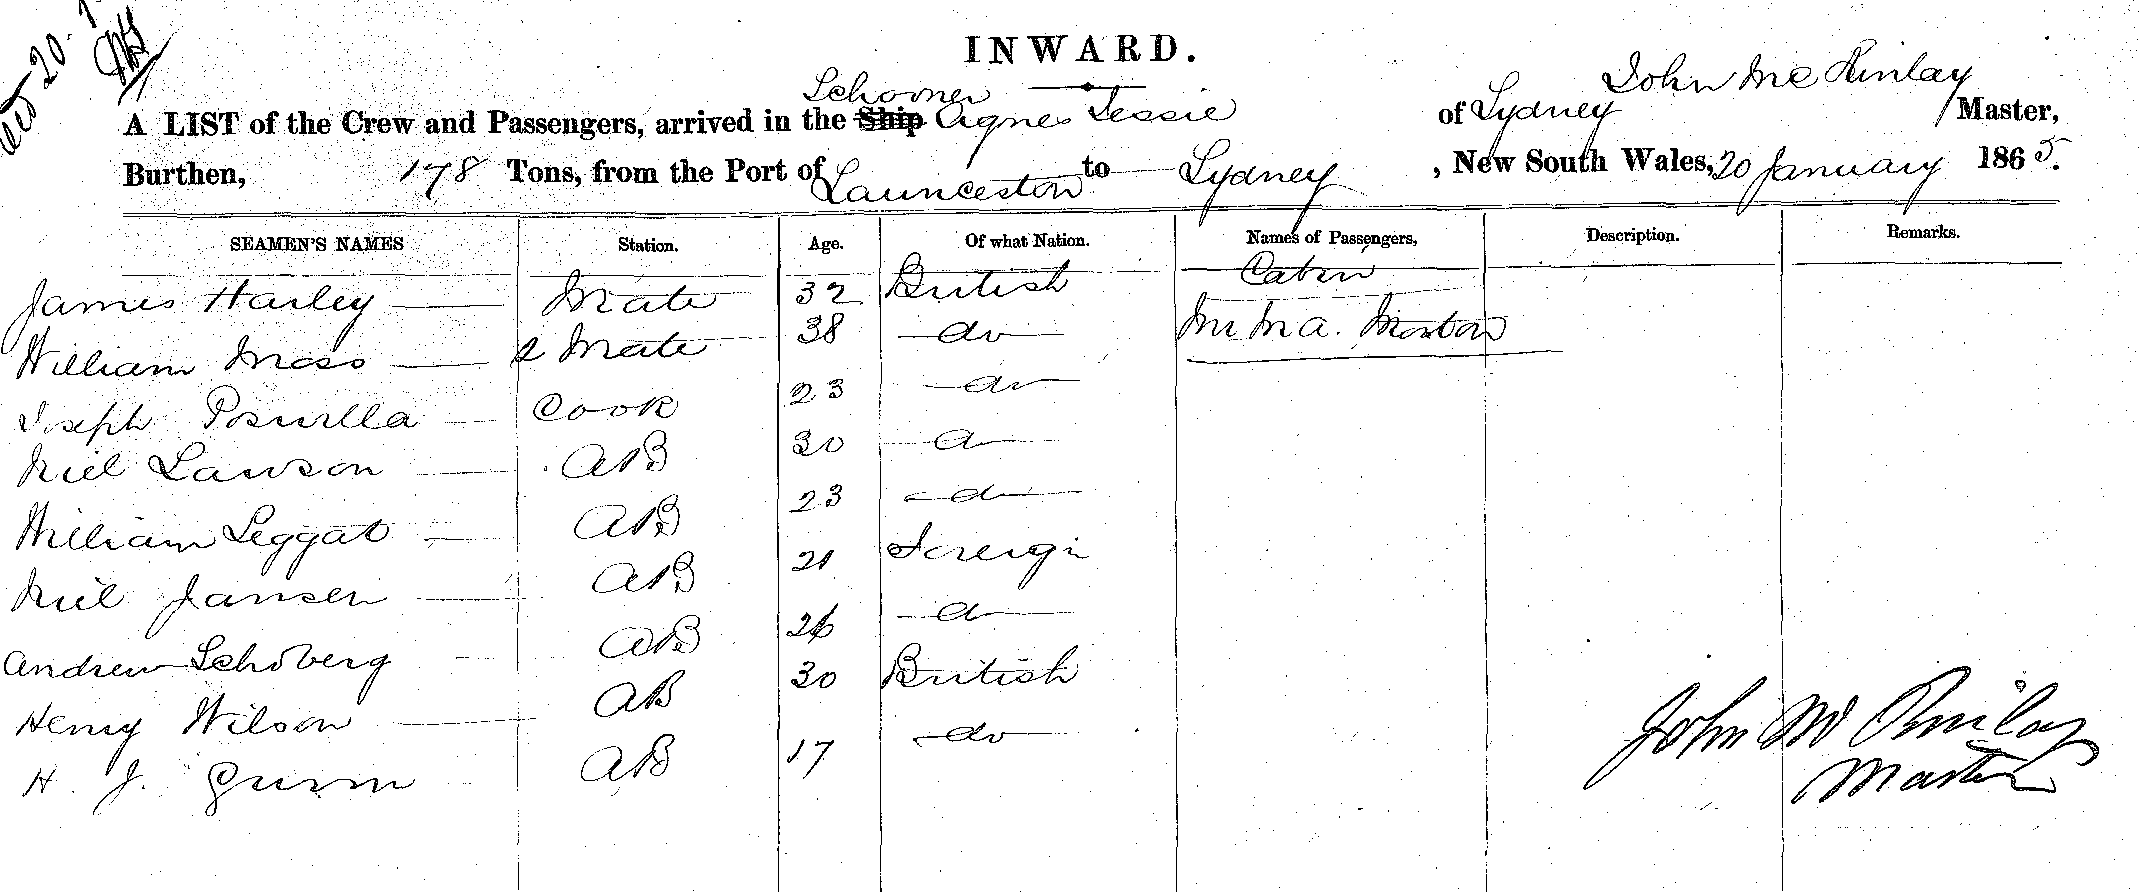 Oct 20
INWARD.
A LIST of the Crew and Passengers, arrived in the Ship Schooner Agnes Jessie of Sydney John McKinlay Master,
Burthen, 178 Tons, from the Port of Launceston to Sydney, New South Wales, 20 January 1865.
SEAMEN'S NAMES Station. Age. Of what Nation. Names of Passengers, Description. Remarks.
Cabin
James Harley Mate 32 British
William Moss 2 Mate 38 do Mr M A. Morton
Joseph 23 Cook do
Niel Lawson AB 30 do
William Leggat AB 23 do
Niel Jansen AB 21 Foreign
Andrew Schoberg AB 26 do
Henry Wilson AB 30 British
H. J. Gunn AB 17 do
John McKinlay
Master